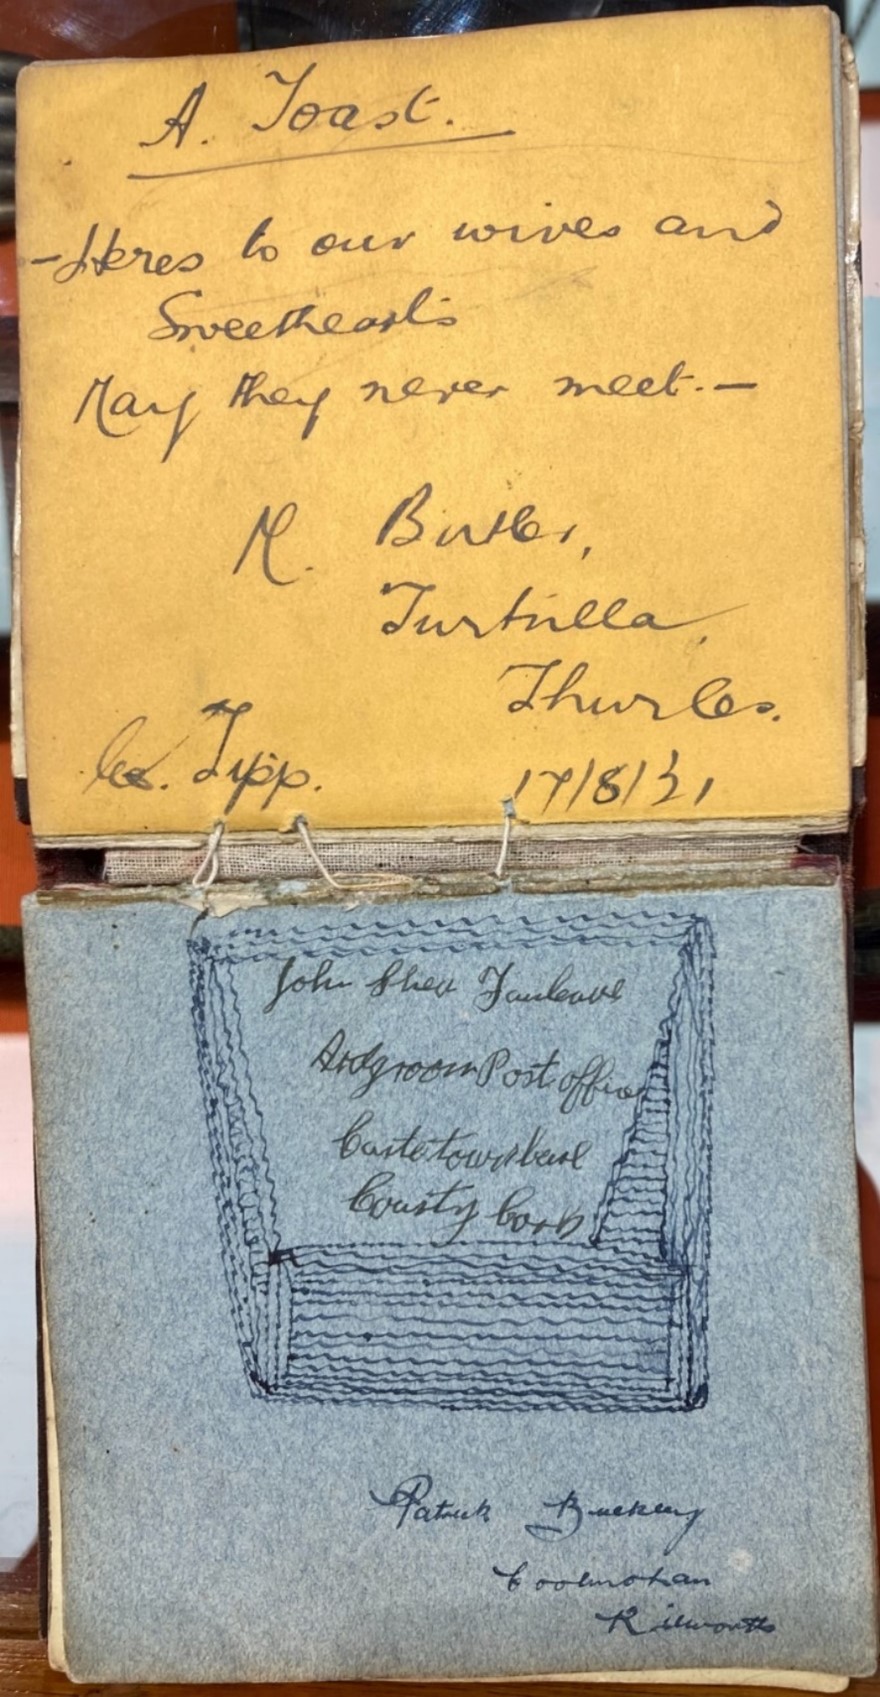 A. Toast.
- Heres to our wives and
Sweethearts
May they never meet. -
M. Butler,
Turtulla,
Thurles.
Co. Tipp. 17/8/21
John Shea
Ardgroom Post office
Castletownbere
County Cork
Patrick Buckley
Coolmohan
Kilworth